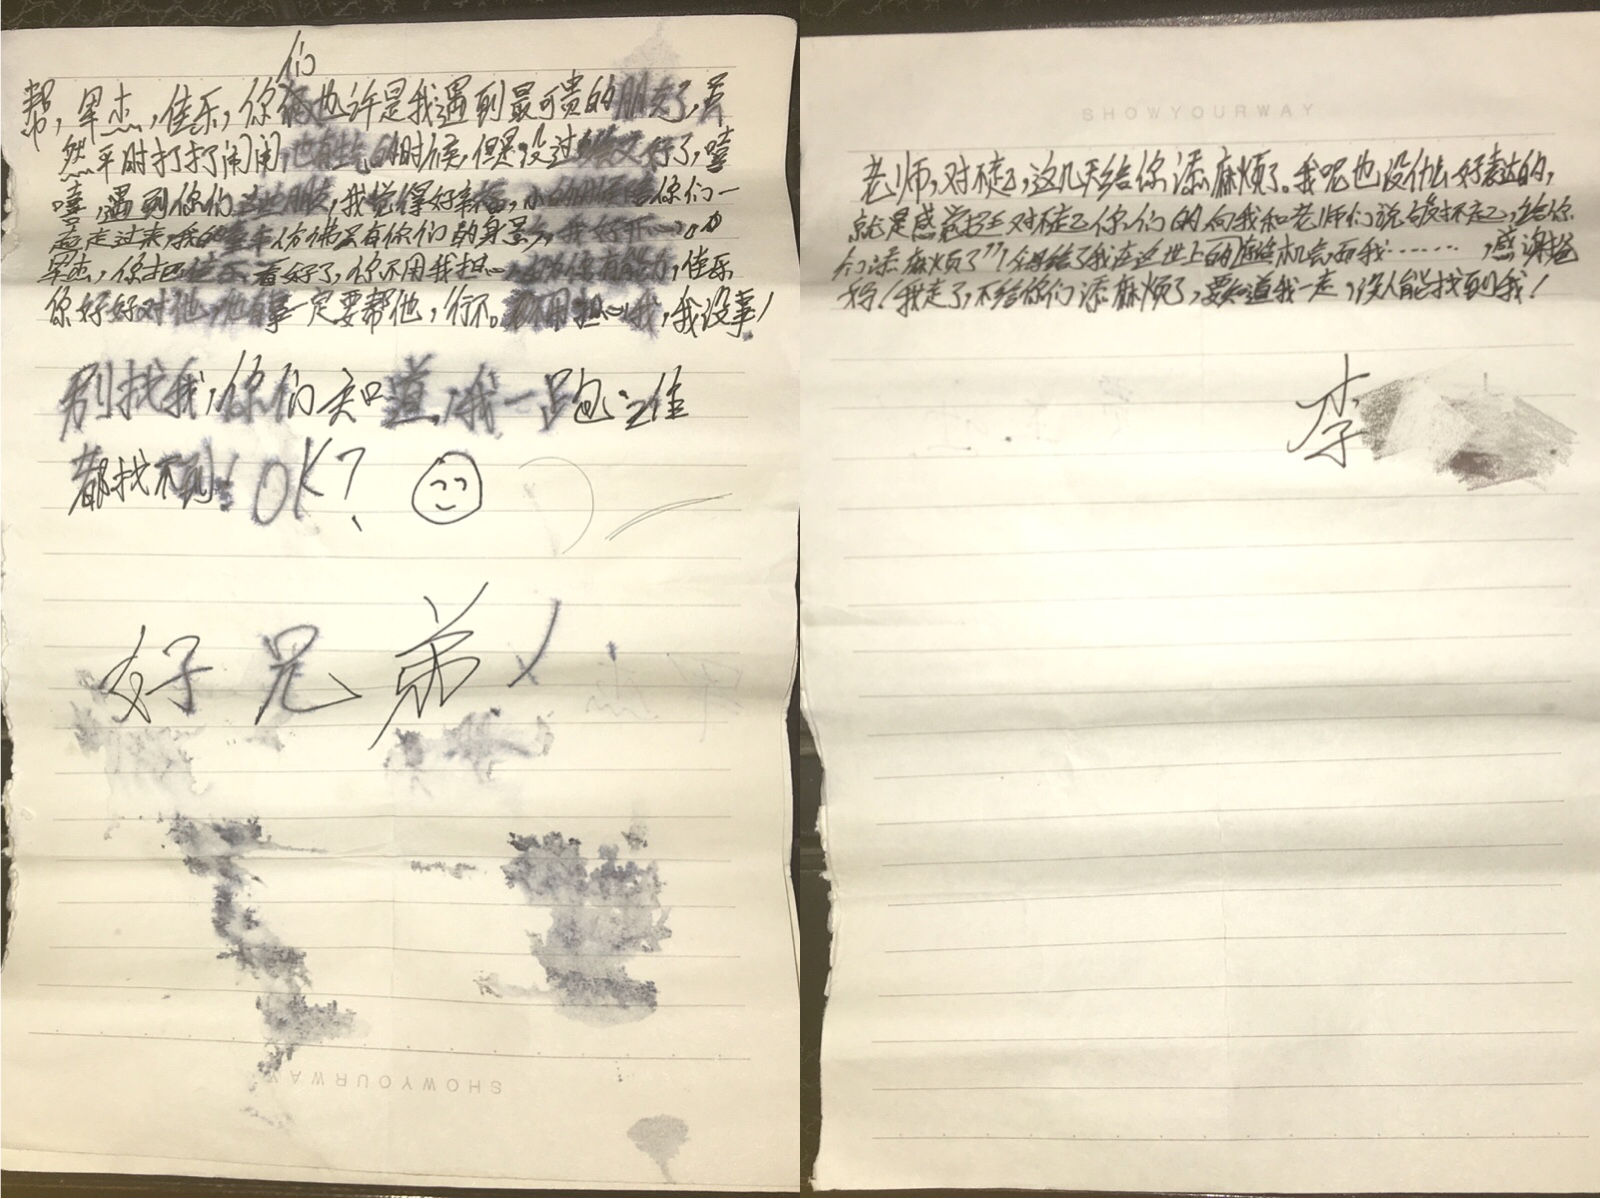 们
帮,军杰,佳乐,你们也许是我遇到最可贵的朋友了,虽
然平时打打闹闹,也有生气的时候,但是没过几天又好了,嘻
嘻,遇到你们这些朋友,我觉得好幸福,小的时候陪你们一
起走过来,我的童年仿佛只有你们的身影,我好开心。
军杰,你把佳乐看好了,你不用我担心,因为你有能力,佳乐
你好好对他,他有事一定要帮他,行不。不用担心我,我没事!
别找我,你们知道,我一跑谁
都找不到!OK?
好兄弟!
SHOWYOURWAY
SHOWYOURWAY
老师,对不起,这几天给你添麻烦了。我呢也没什么好表达的,
就是感觉挺对不起你们的,向我和老师们说声对不起,给你
们添麻烦了,给了我在这世上的机会,而我……,感谢爸
妈!我走了,不给你们添麻烦了,要知道我一走,没人能找到我!
李